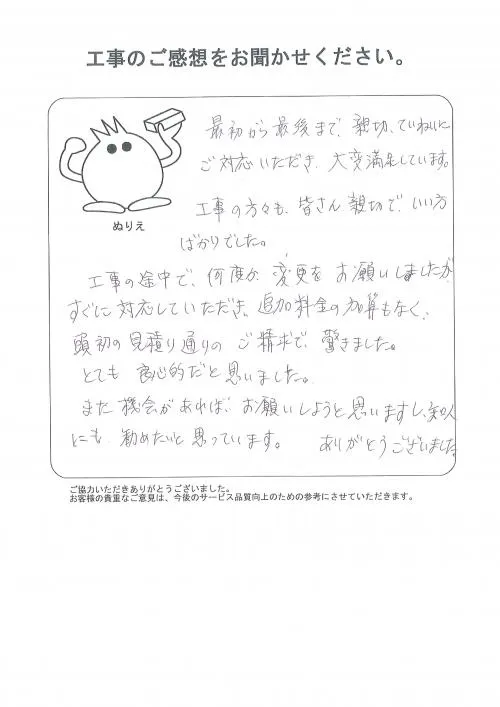 工事のご感想をお聞かせください。
最初から最後まで、親切、ていねいに
ご対応いただき、大変満足しています。
工事の方々も、皆さん親切で、いい方
ばかりでした。
ぬりえ
工事の途中で、何度か変更をお願いしましたが
すぐに対応していただき、追加料金の加算もなく、
頭初の見積り通りのご請求で、驚きました。
とても良心的だと思いました。
また機会があれば、お願いしようと思いますし、知人
にも勧めたいと思っています。 ありがとうございました
ご協力いただきありがとうございました。
お客様の貴重なご意見は、今後のサービス品質向上のための参考にさせていただきます。